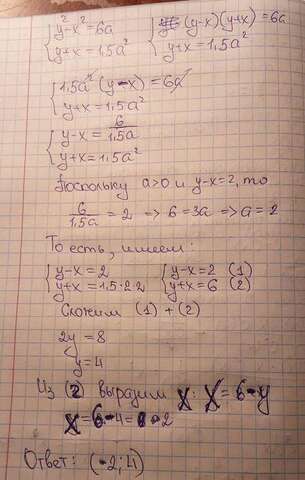 { y² - x² = 6a { (y-x)(y+x) = 6a
{ y+x = 1,5a² { y+x = 1,5a²
{ 1,5a² (y-x) = 6a
{ y+x = 1,5a²
{ y-x = 6/1,5a
{ y+x = 1,5a²
Поскольку a>0 и y-x=2, то
6/1,5a = 2 => 6 = 3a => a = 2
То есть, имеем:
{ y-x = 2 { y-x = 2 (1)
{ y+x = 1,5·2·2 { y+x = 6 (2)
Сложим (1) + (2)
2y = 8
y = 4
Из (2) выразим x: x = 6-y
x = 6-4 = 2
Ответ: (2; 4)